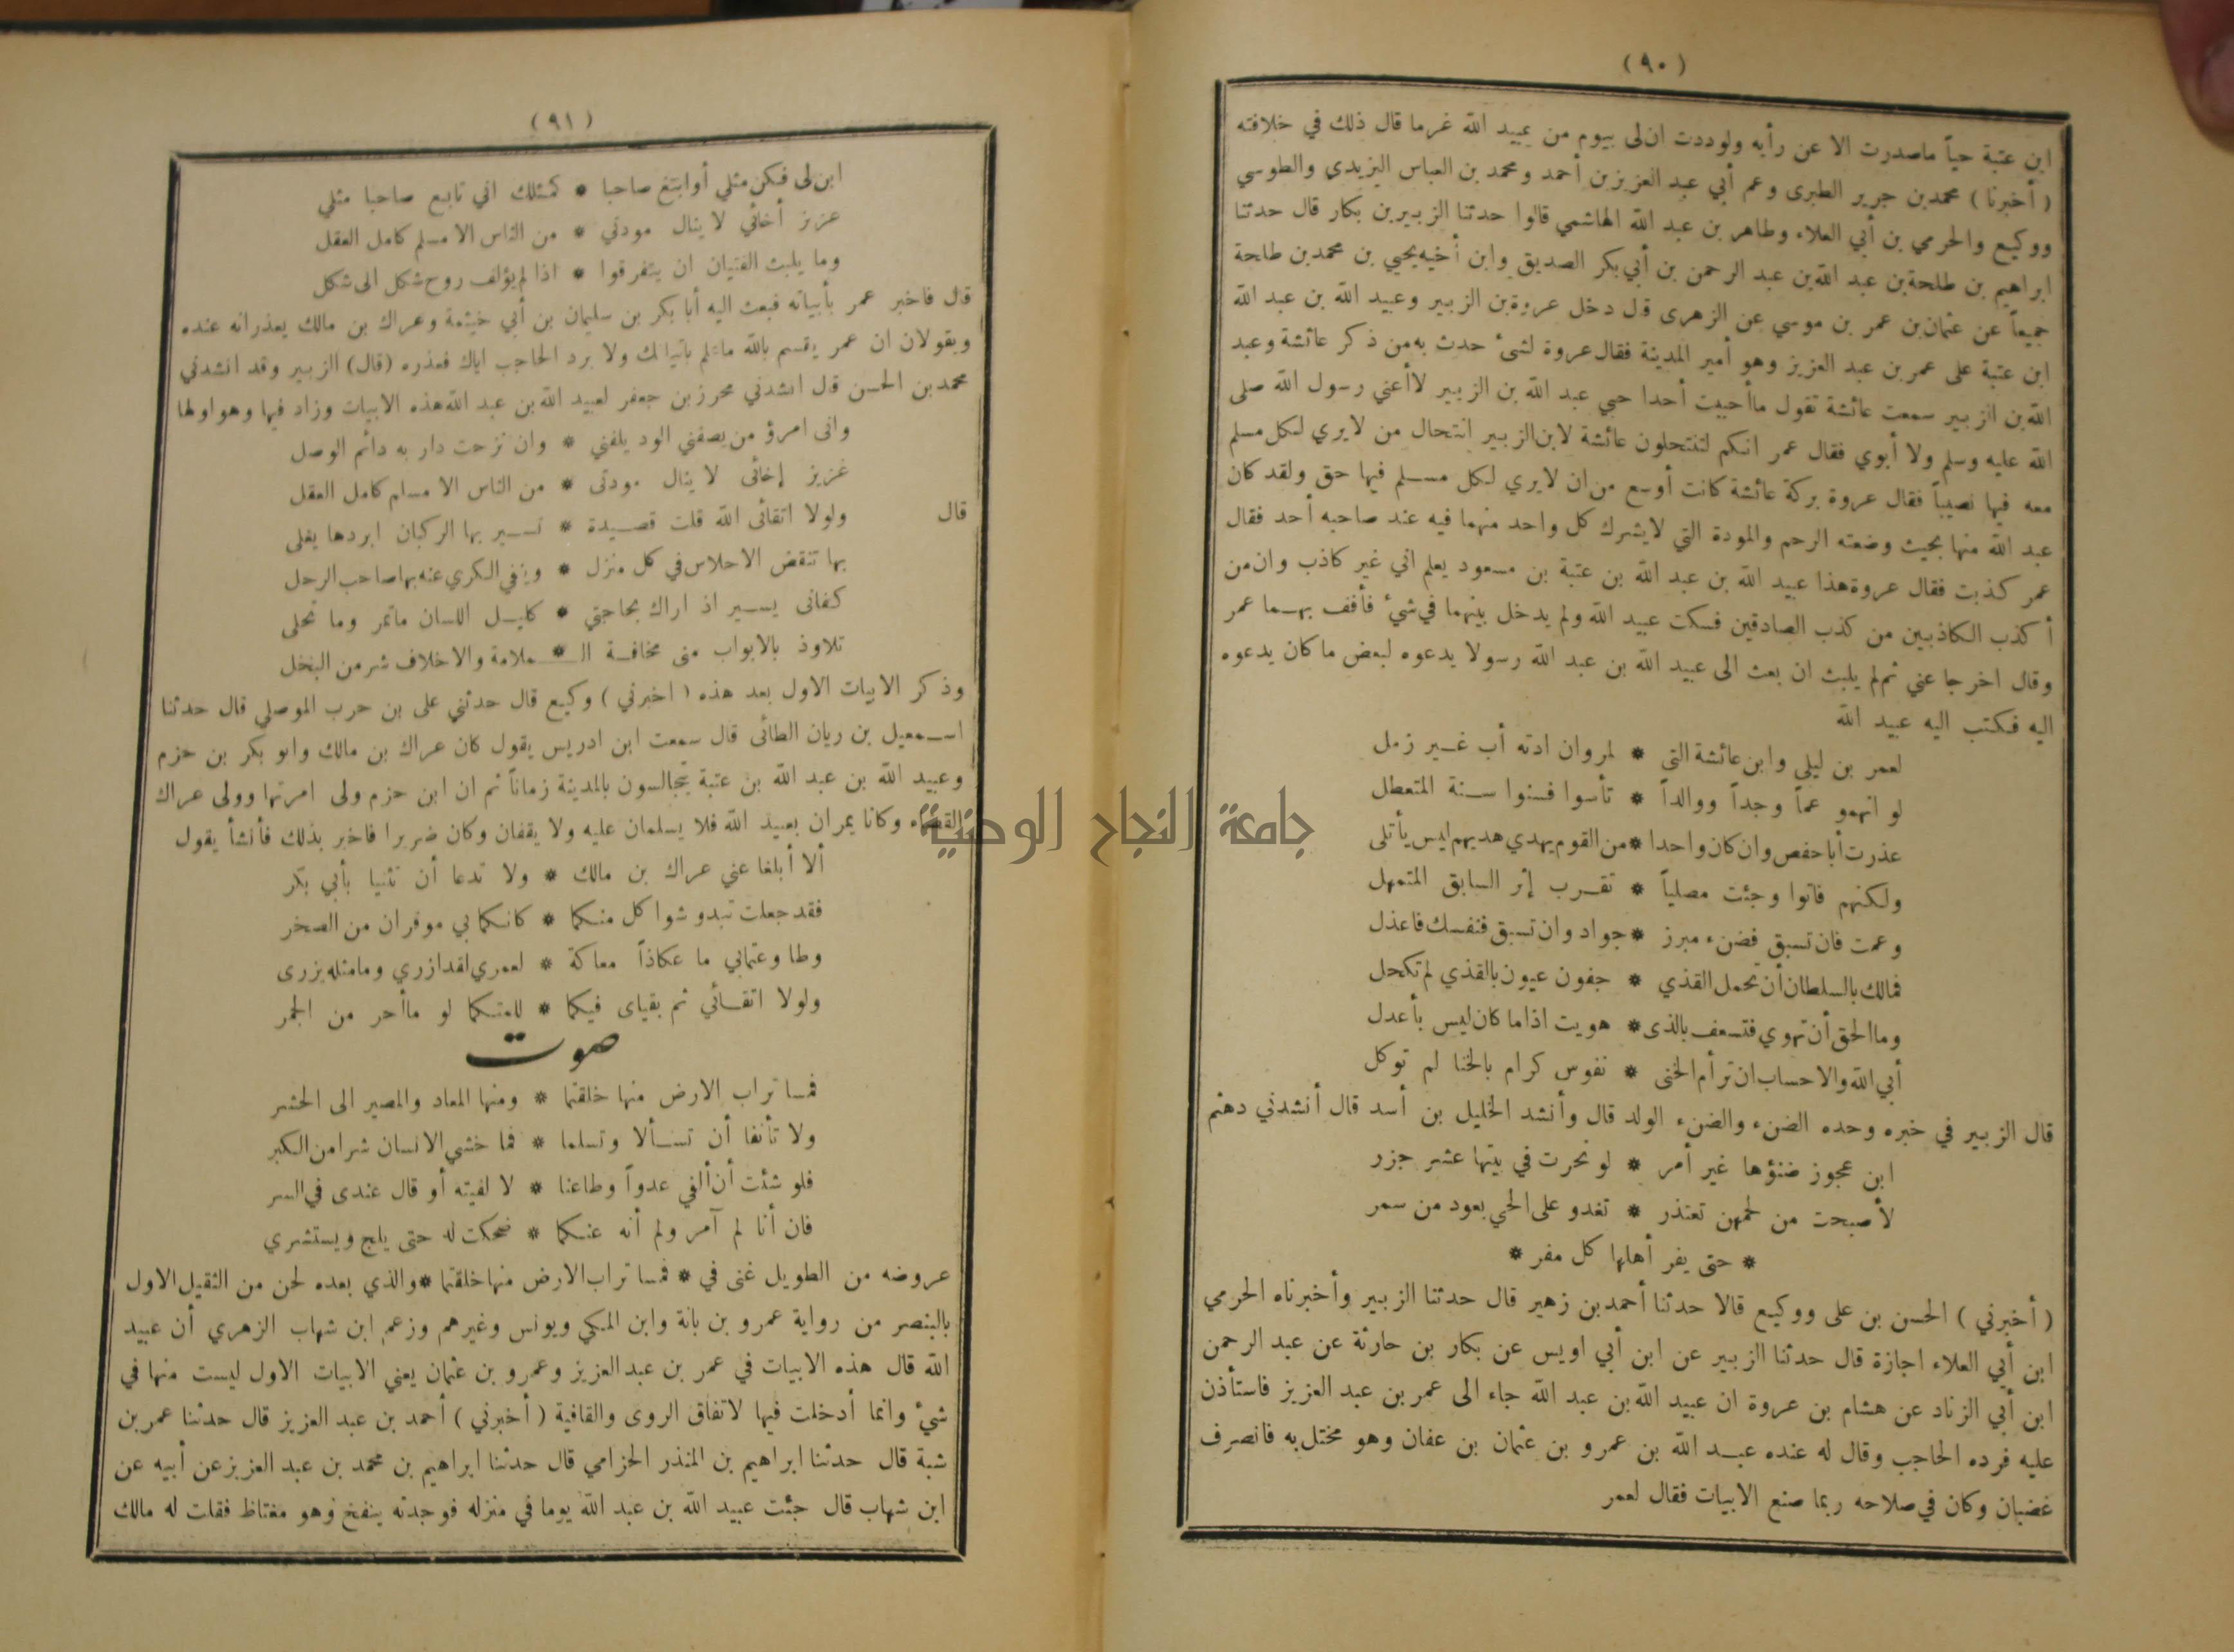 (٩٠)
ابن عتبة حياً ماصدرت الا عن رأيه ولوددت ان لى بيوم من عبيد الله غرما قال ذلك في خلافته
(أخبرنا) محمد بن جرير الطبرى وعم أبي عبد العزيز بن أحمد ومحمد بن العباس اليزيدي والطوسي
ووكيع والحرمي بن أبي العلاء وطاهر بن عبد الله الهاشمي قالوا حدثنا الزبير بن بكار قال حدثنا
ابراهيم بن طلحة بن عبد الله بن عبد الرحمن بن أبي بكر الصديق وابن أخيه يحيي بن محمد بن طلحة
جميعاً عن عثمان بن عمر بن موسي عن الزهرى قال دخل عروة بن الزبير وعبيد الله بن عبد الله
ابن عتبة على عمر بن عبد العزيز وهو أمير المدينة فقال عروة لشىء حدث به من ذكر عائشة وعبد
الله بن الزبير سمعت عائشة تقول ماأحببت أحدا حبي عبد الله بن الزبير لاأعني رسول الله صلى
الله عليه وسلم ولا أبوي فقال عمر انكم لتنتحلون عائشة لابن الزبير انتحال من لايري لكل مسلم
معه فيها نصيباً فقال عروة بركة عائشة كانت أوسع من ان لايري لكل مسلم فيها حق ولقد كان
عبد الله منها بحيث وضعته الرحم والمودة التي لايشرك كل واحد منهما فيه عند صاحبه أحد فقال
عمر كذبت فقال عروة هذا عبيد الله بن عبد الله بن عتبة بن مسعود يعلم اني غير كاذب وان من
أكذب الكاذبين من كذب الصادقين فسكت عبيد الله ولم يدخل بينهما في شيء فأفف بهما عمر
وقال اخرجا عني ثم لم يلبث ان بعث الى عبيد الله بن عبد الله رسولا يدعوه لبعض ما كان يدعوه
اليه فكتب اليه عبيد الله
لعمر بن ليلي وابن عائشة التى * لمروان ادته أب غير زمل
لو انهمو عماً وجداً ووالداً * تأسوا فسنوا سنة المتعطل
عذرت أبا حفص وان كان واحدا * من القوم يهدي هديهم ليس يأتلى
ولكنهم فاتوا وجئت مصلياً * تقرب إثر السابق المتمهل
وعمت فان تسبق فضنء مبرز * جواد وان تسبق فنفسك فاعذل
فمالك بالسلطان أن تحمل القذي * جفون عيون بالقذي لم تكحل
وما الحق أن تهوي فتسعف بالذى * هويت اذا ما كان ليس بأعدل
أبي الله والاحساب ان ترأم الخنى * نفوس كرام بالخنا لم توكل
قال الزبير في خبره وحده الضنء والضنء الولد قال وأنشد الخليل بن أسد قال أنشدني دهثم
ابن عجوز ضنؤها غير أمر * لو نحرت في بيتها عشر جزر
لأصبحت من لحمهن تعتذر * تغدو على الحي بعود من سمر
* حتى يفر أهلها كل مفر *
(أخبرني) الحسن بن على ووكيع قالا حدثنا أحمد بن زهير قال حدثنا الزبير وأخبرناه الحرمي
ابن أبي العلاء اجازة قال حدثنا الزبير عن ابن أبي اويس عن بكار بن حارثة عن عبد الرحمن
ابن أبي الزناد عن هشام بن عروة ان عبيد الله بن عبد الله جاء الى عمر بن عبد العزيز فاستأذن
عليه فرده الحاجب وقال له عنده عبد الله بن عمرو بن عثمان بن عفان وهو مختل به فانصرف
غضبان وكان في صلاحه ربما صنع الابيات فقال لعمر
(٩١)
ابن لى فكن مثلي أو ابتغ صاحبا * كمثلك اني تابع صاحبا مثلي
عزيز أخائي لا ينال مودتي * من الناس الا مسلم كامل العقل
وما يلبث الفتيان ان يتفرقوا * اذا لم يؤلف روح شكل الى شكل
قال فاخبر عمر بأبياته فبعث اليه أبا بكر بن سليمان بن أبي خيثمة وعراك بن مالك يعذرانه عنده
ويقولان ان عمر يقسم بالله ماعلم باتيانك ولا برد الحاجب اياك فعذره (قال) الزبير وقد انشدني
محمد بن الحسن قال انشدني محرز بن جعفر لعبيد الله بن عبد الله هذه الابيات وزاد فيها وهو اولها
وانى امرؤ من يصفني الود يلفني * وان نزحت دار به دائم الوصل
عزيز إخائى لا ينال مودتى * من الناس الا مسلم كامل العقل
قال ولولا اتقائى الله قلت قصيدة * تسير بها الركبان ابردها يغلى
بها تنقض الاحلاس في كل منزل * وينفي الكري عنه بها صاحب الرحل
كفانى يسير اذ اراك بحاجتي * كليل اللسان ماتمر وما تحلى
تلاوذ بالابواب منى مخافة ال * ملامة والاخلاف شر من البخل
وذكر الابيات الاول بعد هذه (اخبرني) وكيع قال حدثني على بن حرب الموصلي قال حدثنا
اسمعيل بن ريان الطائى قال سمعت ابن ادريس يقول كان عراك بن مالك وابو بكر بن حزم
وعبيد الله بن عبد الله بن عتبة يتجالسون بالمدينة زماناً ثم ان ابن حزم ولى امرتها وولى عراك
القضاء وكانا يمران بعبيد الله فلا يسلمان عليه ولا يقفان وكان ضريرا فاخبر بذلك فأنشأ يقول
ألا أبلغا عني عراك بن مالك * ولا تدعا أن تثنيا بأبي بكر
فقد جعلت تبدو شواكل منكما * كانكما بي موقران من الصخر
وطا وعتمابي ما عكاذاً معاكة * لعمري لقد ازري وما مثله يزرى
ولولا اتقائي ثم بقياى فيكما * للمتكما لو ماأحر من الجمر
صوت
فمسا تراب الارض منها خلقتما * ومنها المعاد والمصير الى الحشر
ولا تأنفا أن تسألا وتسلما * فما خشي الانسان شرا من الكبر
فلو شئت أن ألفي عدواً وطاعنا * لا لفيته أو قال عندى في السر
فان أنا لم آمر ولم أنه عنكما * ضحكت له حتى يلج ويستشري
عروضه من الطويل غنى في * فمسا تراب الارض منها خلقتما * والذي بعده لحن من الثقيل الاول
بالبنصر من رواية عمرو بن بانة وابن المكي ويونس وغيرهم وزعم ابن شهاب الزهري أن عبيد
الله قال هذه الابيات في عمر بن عبد العزيز وعمرو بن عثمان يعني الابيات الاول ليست منها في
شيء وانما أدخلت فيها لاتفاق الروى والقافية (أخبرني) أحمد بن عبد العزيز قال حدثنا عمر بن
شبة قال حدثنا ابراهيم بن المنذر الحزامي قال حدثنا ابراهيم بن محمد بن عبد العزيز عن أبيه عن
ابن شهاب قال جئت عبيد الله بن عبد الله يوما في منزله فوجدته ينفخ وهو مغتاظ فقلت له مالك
جامعة النجاح الوطنية